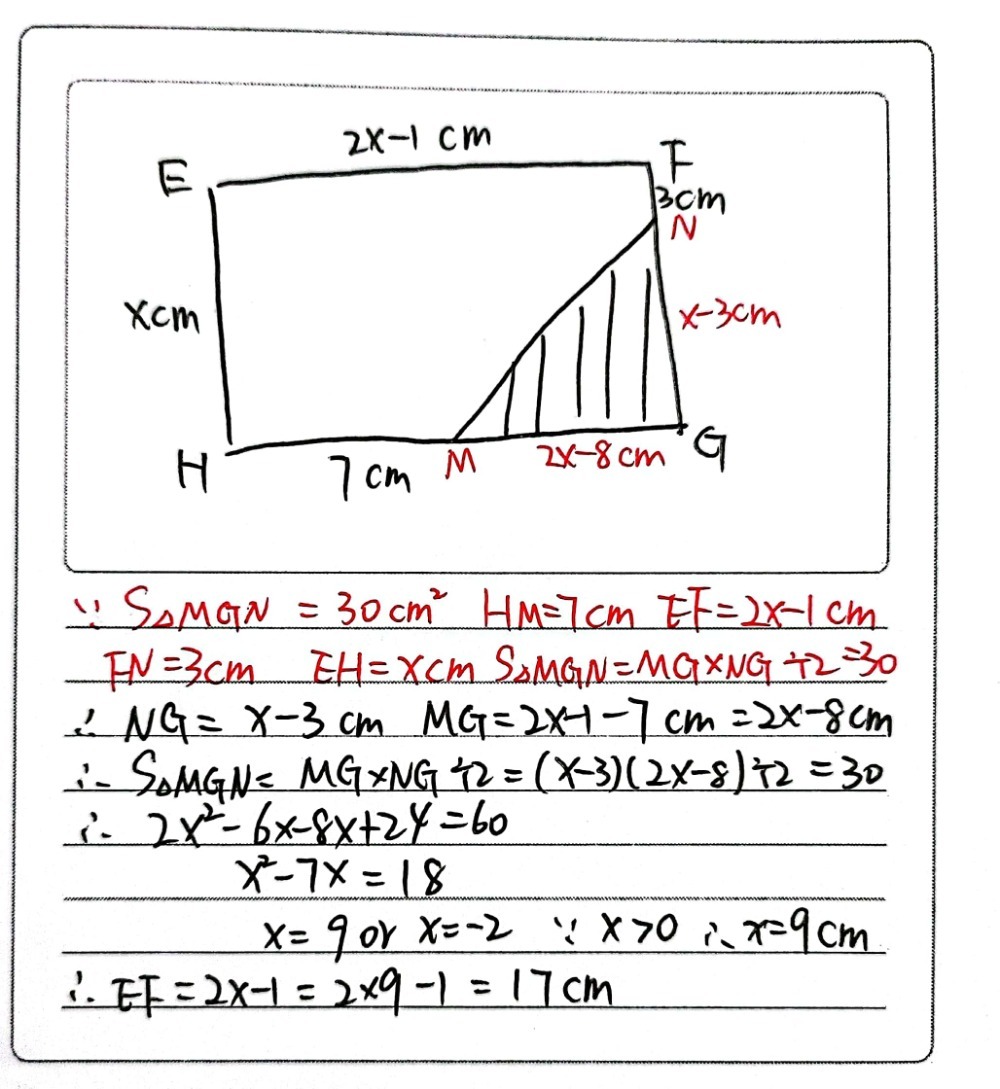 2x-1 cm
E
F
3cm
N
xcm
x-3cm
H
7cm
M
2x-8cm
G
∵ S△MGN = 30cm² HM=7cm EF=2x-1cm
FN=3cm EH=xcm S△MGN=MG×NG÷2=30
∴ NG= x-3 cm MG=2x-1-7 cm =2x-8cm
∴ S△MGN= MG×NG÷2=(x-3)(2x-8)÷2=30
∴ 2x²-6x-8x+24=60
x²-7x=18
x=9 or x=-2 ∵ x>0 ∴ x=9cm
∴ EF=2x-1=2×9-1=17cm